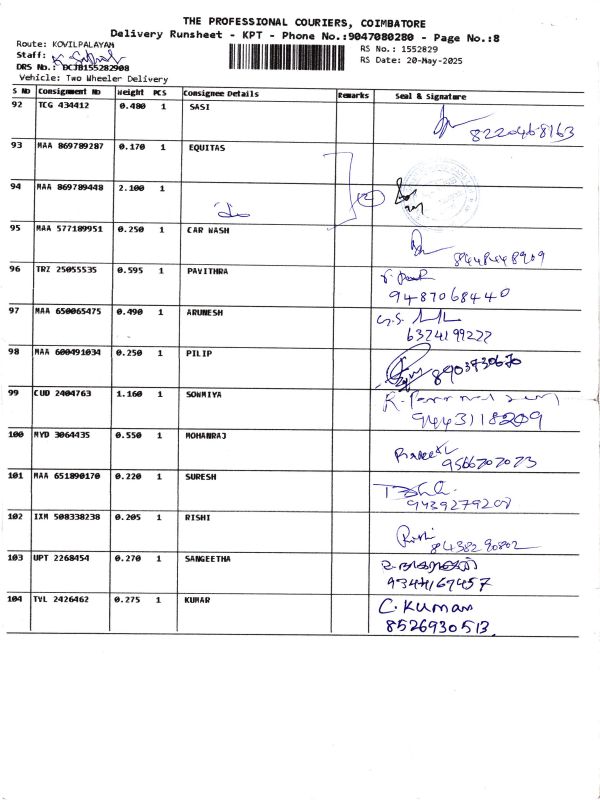 THE PROFESSIONAL COURIERS, COIMBATORE
Delivery Runsheet - KPT - Phone No.:9047080280 - Page No.:8
Route: KOVILPALAYAM
RS No.: 1552829
Staff:
RS Date: 20-May-2025
DRS No.: DCJB155282908
Vehicle: Two Wheeler Delivery
S No Consignment No Weight PCS Consignee Details Remarks Seal & Signature
92 TCG 434412 0.480 1 SASI
8220468163
93 MAA 869789287 0.170 1 EQUITAS
94 MAA 869789448 2.100 1
95 MAA 577189951 0.250 1 CAR WASH
8448448909
96 TRZ 25055535 0.595 1 PAVITHRA
9487068440
97 MAA 650065475 0.490 1 ARUNESH
6374199277
98 MAA 600491034 0.250 1 PILIP
8903730670
99 CUD 2404763 1.160 1 SOWMIYA
9443118209
100 MYD 3064435 0.550 1 MOHANRAJ
9566707073
101 MAA 651890170 0.220 1 SURESH
9439279208
102 IXM 508338238 0.205 1 RISHI
Rishi
8438290802
103 UPT 2268454 0.270 1 SANGEETHA
9344167457
104 TVL 2426462 0.275 1 KUMAR
C. Kumar
8526930513